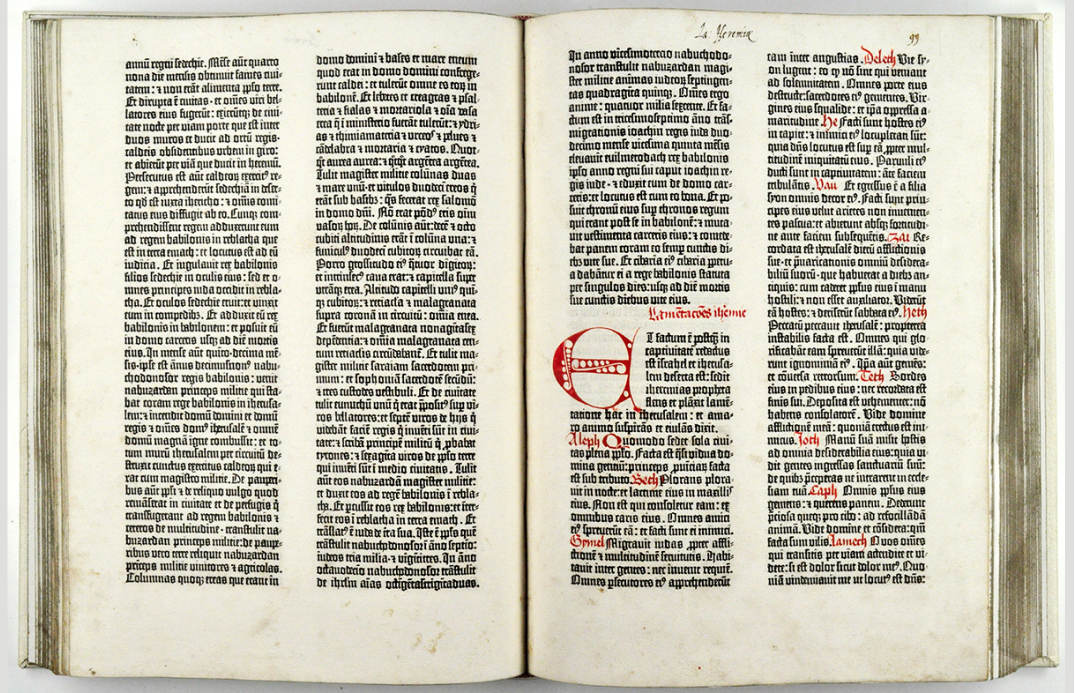 La: Jeremiæ
99
annū regni sedechie. Mēse aūt quarto
nona die mensis obtinuit fames civi-
tatem: ⁊ non erāt alimenta ppl̄o terre.
Et dirupta ē civitas · et om̄es viri bel-
latores eius fugerūt: exierūtq; de civi-
tate nocte per viam porte que est inter
duos muros et ducit ad ortū regis ·
caldeis obsidentibus urbem in giro:
et abierūt per viā que ducit in heremū.
Persecutus est aūt caldeoꝝ exercit⁹ re-
gem: ⁊ apprehenderūt sedechiā in deser-
to qd̄ est iuxta ihericho: ⁊ om̄is comi-
tatus eius diffugit ab eo. Cunq; com-
prehendissent regem adduxerunt eum
ad regem babilonis in reblatha que
est in terra emath: et locutus est ad eū
iudicia. Et iugulavit rex babilonis
filios sedechie in oculis eius: sed et o-
mnes principes iuda occidit in rebla-
tha. Et oculos sedechie eruit: et vinxit
eum in compedib⁹. Et adduxit eū rex
babilonis in babilonem: et posuit eū
in domo carceris usq; ad diē mortis
eius. In mense aūt quīto · decima mē-
sis · ipse est ānus decimusnon⁹ nabu-
chodonosor regis babilonis : venit
nabuzardan princeps milicie qui sta-
bat coram rege babilonis in iherusa-
lem: ⁊ incendit domū domini et domū
regis ⁊ om̄es dom⁹ iherusalē ⁊ omnē
domū magnā igne combussit: et to-
tum murū iherusalem per circuitū de-
struxit cunctus exercitus caldeoꝝ qui e-
rat cum magistro milicie. De paupri-
bus aūt ppl̄i ⁊ de reliquo vulgo quod
remāserat in civitate et de perfugis q̄
transfugerant ad regem babilonis ⁊
ceteros de multitudine · transtulit na-
buzardan princeps milicie: de paup-
ribus vero terre reliquit nabuzardan
princeps milicie vinitores ⁊ agricolas.
Columnas quoq; ereas que erant in
domo domini ⁊ bases et mare eneum
quod erat in domo domini confrege-
runt caldei: et tulerūt omne es eoꝝ in
babilonē. Et lebetes et creagras ⁊ psal-
teria ⁊ fialas ⁊ mortariola ⁊ oīa vasa
erea q̄ ī ministerio fuerāt tulerūt: ⁊ ydri-
as ⁊ thimiamateria ⁊ urceos ⁊ pelues ⁊
cādelabra ⁊ mortaria ⁊ cyatos. Quot-
q̄t aurea aurea: ⁊ q̄tq̄t argētea argētea.
Tulit magister milicie colūnas duas
⁊ mare unū · et vitulos duodecī ereos q̄
erāt sub basib⁹: q̄s fecerat rex salomō
in domo dn̄i. Nō erat pōd⁹ eris oīm
vasoꝝ hoꝝ. De colūnis aūt: decē ⁊ octo
cubiti altitudinis erāt ī colūna una: ⁊
funicul⁹ duodecī cubitoꝝ circuibat eā.
Porro grossitudo ei⁹ q̄tuor digitoꝝ: et
intrīsec⁹ cava erat: et capitella super
utrāq; erea. Altitudo capitelli uni⁹ quī-
q; cubitoꝝ: ⁊ reciacula ⁊ malagranata
supra coronā in circuitu: omnia enea.
Et fuerūt malagranata nonagītasex
depēdentia: ⁊ omīa malagranata cen-
tum reciaclis circūdabant. Et tulit ma-
gister milicie saraiam sacerdotem pri-
mum: et sophoniam sacerdotē secūdū:
et tres custodes vestibuli. Et de civitate
tulit eunuchū unū q̄ erat ppositus sup vi-
ros bellatores: et septē viros de hiis q̄
videbāt faciē regis q̄ invēti sūt in civi-
tate: ⁊ scribā principē militū q̄ pbabat
tyrones: ⁊ sexagīta viros de ppl̄o terre
qui invēti sūt ī medio civitatis. Tulit
aūt eos nabuzardan magister milicie:
et duxit eos ad regē babilonis ī rebla-
tha. Et pcussit eos rex babilonis: et iter-
fecit eos ī reblatha in terra emath. Et
trāslat⁹ ē iuda de t̄ra sua. Iste ē ppl̄s quē
trāstulit nabuchodonosor: ī āno septīo:
iudeos tria milia · ⁊ vigītitres. In āno
octavodecīo nabuchodonosor trāstulit
de ihrl̄m aīas octigētas trigītaduas.
In anno vicesimotercio nabuchodo-
nosor transtulit nabuzardan magi-
ster milicie animas iudeoꝝ septingen-
tas quadragīta quinq;. Om̄es ergo
anime: quatuor milia sexcente. Et fa-
ctum est in tricesimoseptimo āno trās-
migrationis ioachin regis iuda · duo-
decimo mense vicesima quinta mēsis
elevavit evilmerodach rex babilonis
ipso anno regni sui caput ioachin re-
gis iude · ⁊ eduxit eum de domo car-
ceris: et locutus est cum eo bona. Et po-
suit thronū eius sup thronos regum
qui erant post se in babilonē: ⁊ muta-
vit vestimenta carceris eius: ⁊ comede-
bat panem coram eo semp cunctis di-
eb⁹ vite sue. Et cibaria ei⁹ cibaria ppetu-
a dabātur ei a rege babilonis statuta
per singulos dies: usq; ad diē mortis
sue cunctis diebus vite eius.
Lamētacōes iheremie
Et factum ē postq̄ in
captivitatē redactus
est israhel et iherusa-
lem deserta est: sedit
iheremias propheta
flens et plāxit lamē-
tatione hāc in iherusalem: et ama-
ro animo suspirās et eiulās dixit.
Aleph Quomodo sedet sola civi-
tas plena ppl̄o. Facta est q̄si vidua do-
mina gentiū: princeps pvinciaꝝ facta
est sub tributo. Beth Plorans plora-
vit in nocte: et lacrime eius in maxillis
eius. Non est qui consoletur eam: ex
omnibus caris eius. Omnes amici
ei⁹ spreverūt eā: et facti sunt ei inimici.
Gymel Migravit iudas ppter affli-
ctionē ⁊ multitudinē servitutis. Habi-
tavit inter gentes: nec invenit requiē.
Omnes psecutores ei⁹ apprehenderūt
eam inter angustias. Deleth Vie sy-
on lugent: eo q̄ nō sint qui veniant
ad solemnitatem. Omnes porte eius
destructe: sacerdotes ei⁹ gementes. Vir-
gines eius squalide: et ip̄a oppressa a-
maritudine. He Facti sunt hostes ei⁹
in capite: ⁊ inimici ei⁹ locupletati sūt:
quia dn̄s locutus est sup eā: ppter mul-
titudinē iniquitatū eius. Parvuli ei⁹
ducti sunt in captivitatem: āte faciem
tribulātis. Vau Et egressus ē a filia
syon omnis decor ei⁹. Facti sunt prin-
cipes eius velut arietes non invenien-
tes pascua: et abierunt absq; fortitudi-
ne ante faciem subsequētis. Zai Re-
cordata est iherusalē dierū afflictionis
sue · et pvaricationis omniū desidera-
biliū suorū · que habuerat a dieb⁹ an-
tiquis: cum caderet ppl̄us eius ī manu
hostili: ⁊ non esset auxiliator. Viderūt
eā hostes: ⁊ deriserūt sabbata ei⁹. Heth
Peccatū peccavit iherusalē: propterea
instabilis facta est. Omnes qui glo-
rificabāt eam spreverūt illā: quia vide-
runt ignominiā ei⁹. Ip̄a aūt gemēs:
et cōversa retrorsum. Teth Sordes
eius in pedibus eius: nec recordata est
finis sui. Deposita est vehementer: nō
habens consolatorē. Vide domine
afflictionē meā: quoniā erectus est ini-
micus. Joth Manū suā misit hostis
ad omnia desiderabilia eius: quia vi-
dit gentes ingressas sanctuariū suū:
de quib⁹ pceperas ne intrarent in eccle-
siam tuā. Caph Omnis ppl̄us eius
gemens: ⁊ querens panem. Dederunt
pciosa queq; pro cibo: ad refocillādā
animā. Vide domine et cōsidera: qm̄
facta sum vilis. Lamech O vos om̄es
qui transitis per viam: attendite et vi-
dete: si est dolor sicut dolor me⁹. Quo-
niā vindemiavit me ut locut⁹ est dn̄s: